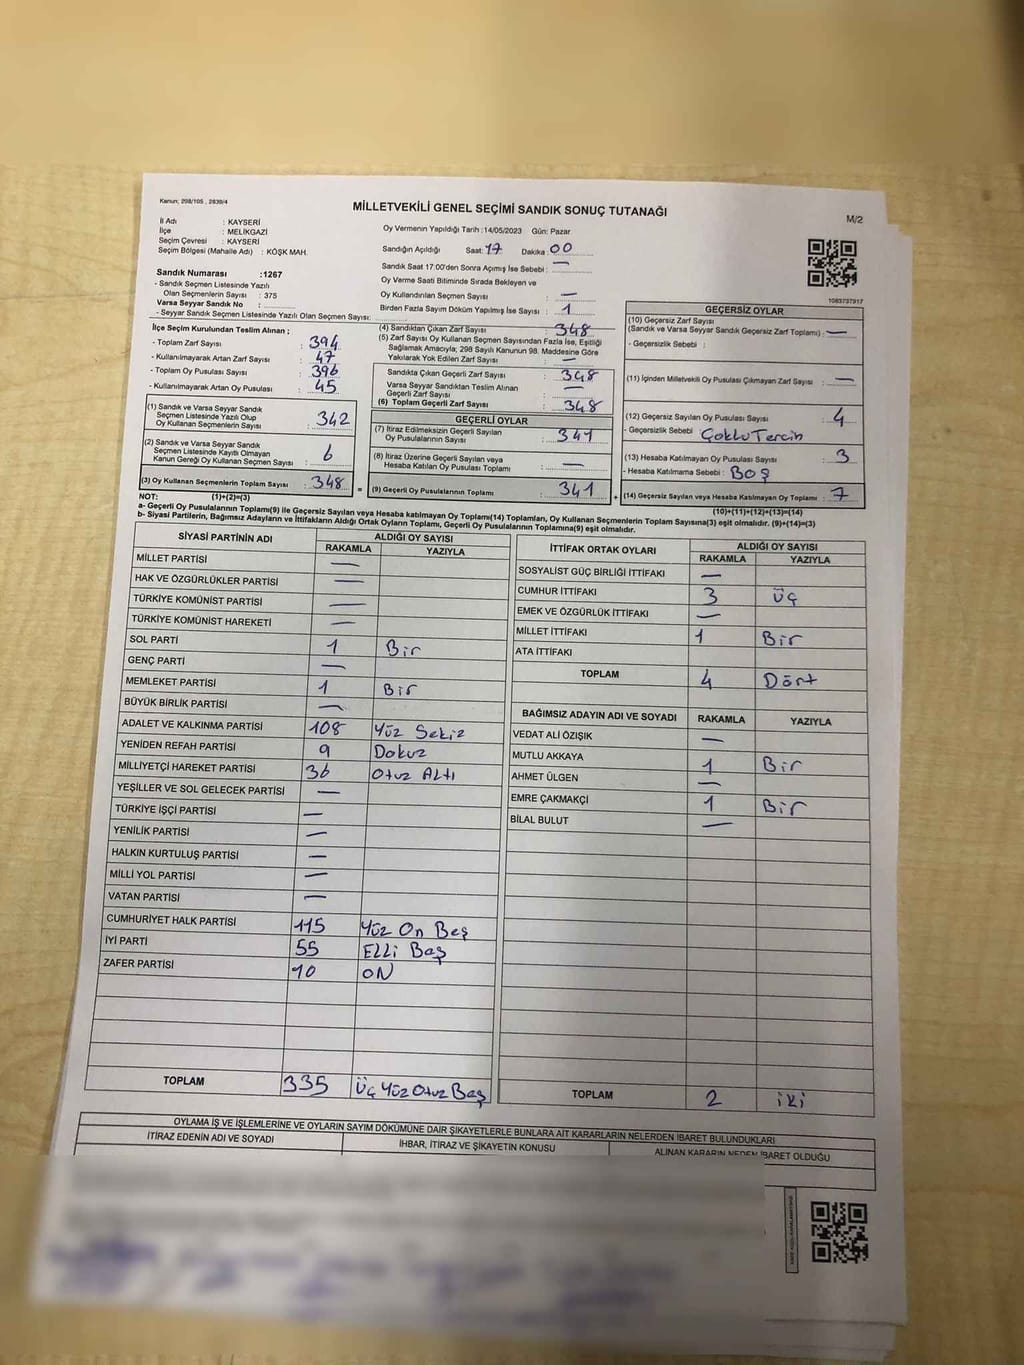 Kanun; 298/105 , 2839/4
MİLLETVEKİLİ GENEL SEÇİMİ SANDIK SONUÇ TUTANAĞI
M/2
İl Adı : KAYSERİ
İlçe : MELİKGAZİ
Seçim Çevresi : KAYSERİ
Seçim Bölgesi (Mahalle Adı) : KÖŞK MAH.
Oy Vermenin Yapıldığı Tarih :14/05/2023 Gün: Pazar
Sandığın Açıldığı Saat: 17 Dakika: 00
Sandık Saat 17:00'den Sonra Açımış İse Sebebi : —
Oy Verme Saati Bitiminde Sırada Bekleyen ve
Oy Kullandırılan Seçmen Sayısı : —
Birden Fazla Sayım Döküm Yapılmış İse Sayısı : 1
Sandık Numarası :1267
- Sandık Seçmen Listesinde Yazılı
Olan Seçmenlerin Sayısı : 375
Varsa Seyyar Sandık No :
- Seyyar Sandık Seçmen Listesinde Yazılı Olan Seçmen Sayısı:
1083737917
İlçe Seçim Kurulundan Teslim Alınan ;
- Toplam Zarf Sayısı : 394
- Kullanılmayarak Artan Zarf Sayısı : 47
- Toplam Oy Pusulası Sayısı : 396
- Kullanılmayarak Artan Oy Pusulası : 45
(1) Sandık ve Varsa Seyyar Sandık
Seçmen Listesinde Yazılı Olup
Oy Kullanan Seçmenlerin Sayısı : 342
(2) Sandık ve Varsa Seyyar Sandık
Seçmen Listesinde Kayıtlı Olmayan
Kanun Gereği Oy Kullanan Seçmen Sayısı : 6
(3) Oy Kullanan Seçmenlerin Toplam Sayısı : 348
(4) Sandıktan Çıkan Zarf Sayısı : 348
(5) Zarf Sayısı Oy Kullanan Seçmen Sayısından Fazla İse, Eşitliği
Sağlamak Amacıyla; 298 Sayılı Kanunun 98. Maddesine Göre
Yakılarak Yok Edilen Zarf Sayısı : —
Sandıkta Çıkan Geçerli Zarf Sayısı : 348
Varsa Seyyar Sandıktan Teslim Alınan
Geçerli Zarf Sayısı : —
(6) Toplam Geçerli Zarf Sayısı : 348
GEÇERLİ OYLAR
(7) İtiraz Edilmeksizin Geçerli Sayılan
Oy Pusulalarının Sayısı : 341
(8) İtiraz Üzerine Geçerli Sayılan veya
Hesaba Katılan Oy Pusulası Toplamı : —
= (9) Geçerli Oy Pusulalarının Toplamı : 341
GEÇERSİZ OYLAR
(10) Geçersiz Zarf Sayısı
(Sandık ve Varsa Seyyar Sandık Geçersiz Zarf Toplamı) : —
- Geçersizlik Sebebi :
(11) İçinden Milletvekili Oy Pusulası Çıkmayan Zarf Sayısı : —
(12) Geçersiz Sayılan Oy Pusulası Sayısı : 4
- Geçersizlik Sebebi : Çoklu Tercih
(13) Hesaba Katılmayan Oy Pusulası Sayısı : 3
- Hesaba Katılmama Sebebi : BOŞ
+ (14) Geçersiz Sayılan veya Hesaba Katılmayan Oy Toplamı : 7
NOT: (1)+(2)=(3)
(10)+(11)+(12)+(13)=(14)
a- Geçerli Oy Pusulalarının Toplamı(9) ile Geçersiz Sayılan veya Hesaba katılmayan Oy Toplamı(14) Toplamları, Oy Kullanan Seçmenlerin Toplam Sayısına(3) eşit olmalıdır. (9)+(14)=(3)
b- Siyasi Partilerin, Bağımsız Adayların ve İttifakların Aldığı Ortak Oyların Toplamı, Geçerli Oy Pusulalarının Toplamına(9) eşit olmalıdır.
SİYASİ PARTİNİN ADI ALDIĞI OY SAYISI
RAKAMLA YAZIYLA
MİLLET PARTİSİ —
HAK VE ÖZGÜRLÜKLER PARTİSİ —
TÜRKİYE KOMÜNİST PARTİSİ —
TÜRKİYE KOMÜNİST HAREKETİ —
SOL PARTİ 1 Bir
GENÇ PARTİ —
MEMLEKET PARTİSİ 1 Bir
BÜYÜK BİRLİK PARTİSİ —
ADALET VE KALKINMA PARTİSİ 108 Yüz Sekiz
YENİDEN REFAH PARTİSİ 9 Dokuz
MİLLİYETÇİ HAREKET PARTİSİ 36 Otuz Altı
YEŞİLLER VE SOL GELECEK PARTİSİ —
TÜRKİYE İŞÇİ PARTİSİ —
YENİLİK PARTİSİ —
HALKIN KURTULUŞ PARTİSİ —
MİLLİ YOL PARTİSİ —
VATAN PARTİSİ —
CUMHURİYET HALK PARTİSİ 115 Yüz On Beş
İYİ PARTİ 55 Elli Beş
ZAFER PARTİSİ 10 ON
TOPLAM 335 Üç Yüz Otuz Beş
İTTİFAK ORTAK OYLARI ALDIĞI OY SAYISI
RAKAMLA YAZIYLA
SOSYALİST GÜÇ BİRLİĞİ İTTİFAKI —
CUMHUR İTTİFAKI 3 Üç
EMEK VE ÖZGÜRLÜK İTTİFAKI —
MİLLET İTTİFAKI 1 Bir
ATA İTTİFAKI
TOPLAM 4 Dört
BAĞIMSIZ ADAYIN ADI VE SOYADI RAKAMLA YAZIYLA
VEDAT ALİ ÖZIŞIK —
MUTLU AKKAYA 1 Bir
AHMET ÜLGEN —
EMRE ÇAKMAKÇİ 1 Bir
BİLAL BULUT —
TOPLAM 2 iki
OYLAMA İŞ VE İŞLEMLERİNE VE OYLARIN SAYIM DÖKÜMÜNE DAİR ŞİKAYETLERLE BUNLARA AİT KARARLARIN NELERDEN İBARET BULUNDUKLARI
İTİRAZ EDENİN ADI VE SOYADI
İHBAR, İTİRAZ VE ŞİKAYETİN KONUSU
ALINAN KARARIN NEDEN İBARET OLDUĞU